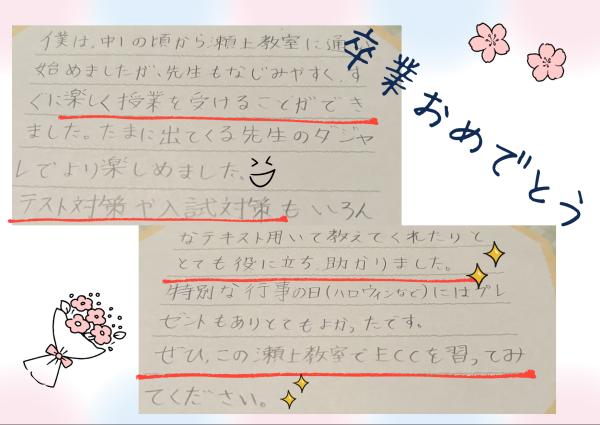 卒業おめでとう
僕は、中1の頃から瀬上教室に通い
始めましたが、先生もなじみやすく、す
ぐに楽しく授業を受けることができ
ました。たまに出てくる先生のダジャ
レでより楽しめました。
テスト対策や入試対策もいろん
なテキスト用いて教えてくれたりと
とても役に立ち、助かりました。
特別な行事の日(ハロウィンなど)にはプレ
ゼントもありとてもよかったです。
ぜひ、この瀬上教室でECCを習ってみ
てください。